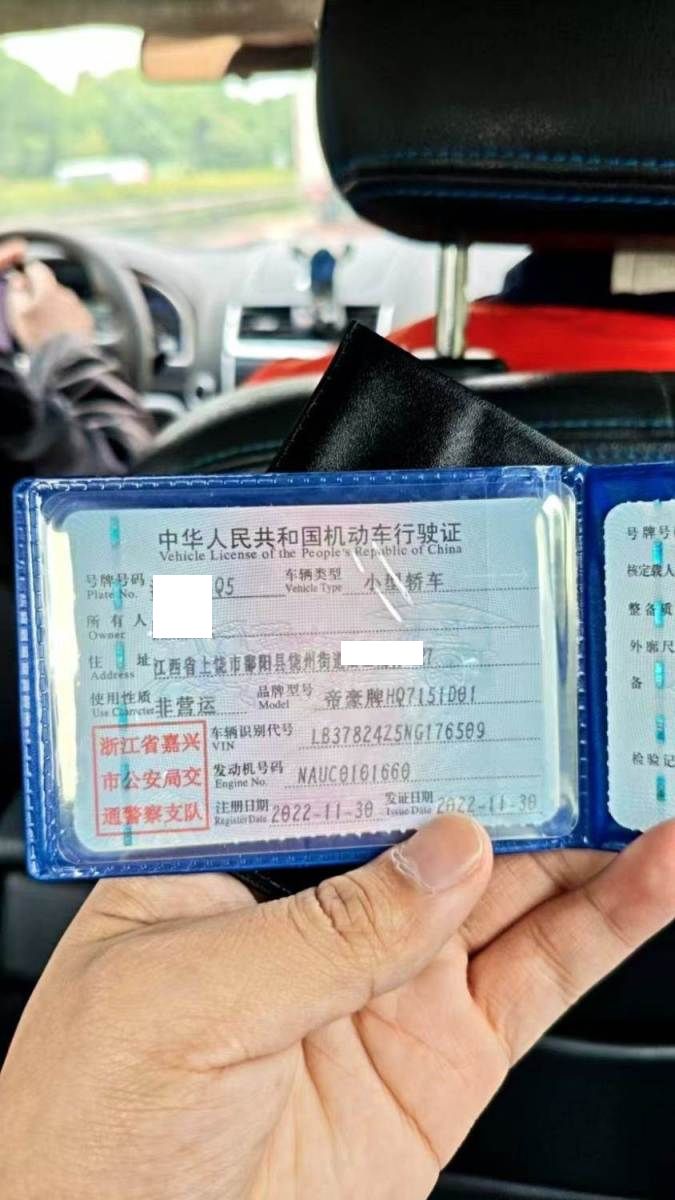 中华人民共和国机动车行驶证
Vehicle License of the People's Republic of China
号牌号码 Q5 车辆类型 小型轿车
Plate No. Vehicle Type
所有人
Owner
住址 江西省上饶市鄱阳县饶州街道 7
Address
使用性质 非营运 品牌型号 帝豪牌HQ7151D01
Use Character Model
浙江省嘉兴
市公安局交
通警察支队
车辆识别代号 LB37824Z5NG176509
VIN
发动机号码 NAUC0101660
Engine No.
注册日期 2022-11-30 发证日期 2022-11-30
Register Date Issue Date
号牌号
核定载人
整备质
外廓尺
备
检验记